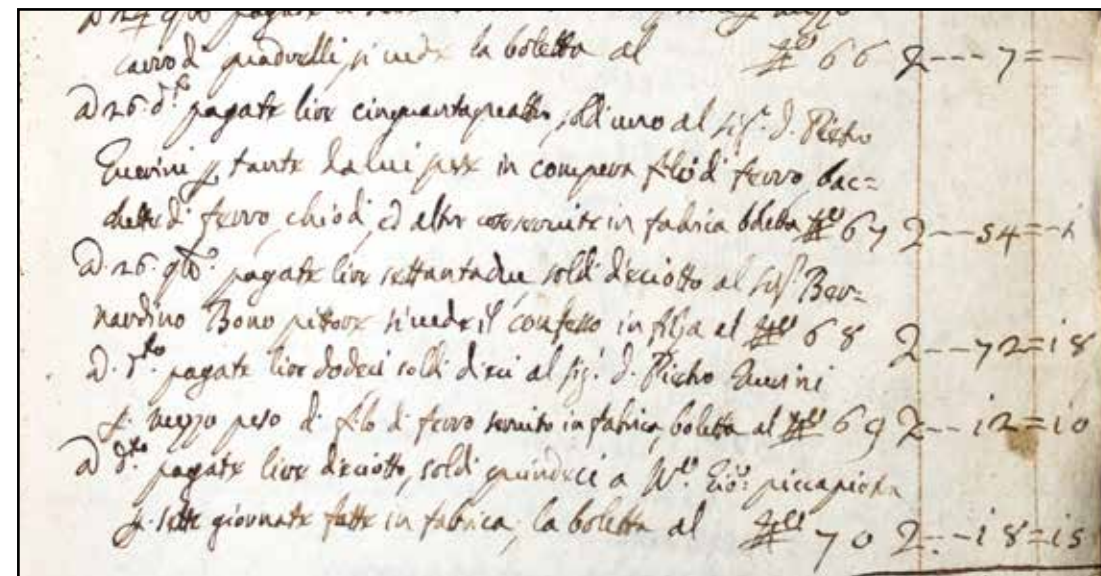 carro di quadrelli si vede la boletta al N.º 66 L---7=—
a 26. d.º pagate lire cinquantaquattro, soldi uno al sig.r d. Pietro
Guerini p. tante da lui spese in compera filo di ferro, bac=
chette di ferro, chiodi, ed altre cose servite in fabrica boletta N.º 67 L---54=-i
a. 26. pagate lire settantadue soldi dieciotto al sig.r Ber=
nardino Bono pittore si vede il confesso in filza al N.º 68 L---72=i8
a. d.to pagate lire dodeci soldi dieci al sig.r d. Pietro Guerini
p. mezzo peso di filo di ferro servito in fabrica, boletta al N.º 69 L---i2=i0
a d.to pagate lire dieciotto, soldi quindeci a M.º Gio: piccapietra
p. sette giornate fatte in fabrica, la boletta al N.º 70 L.--i8=i5